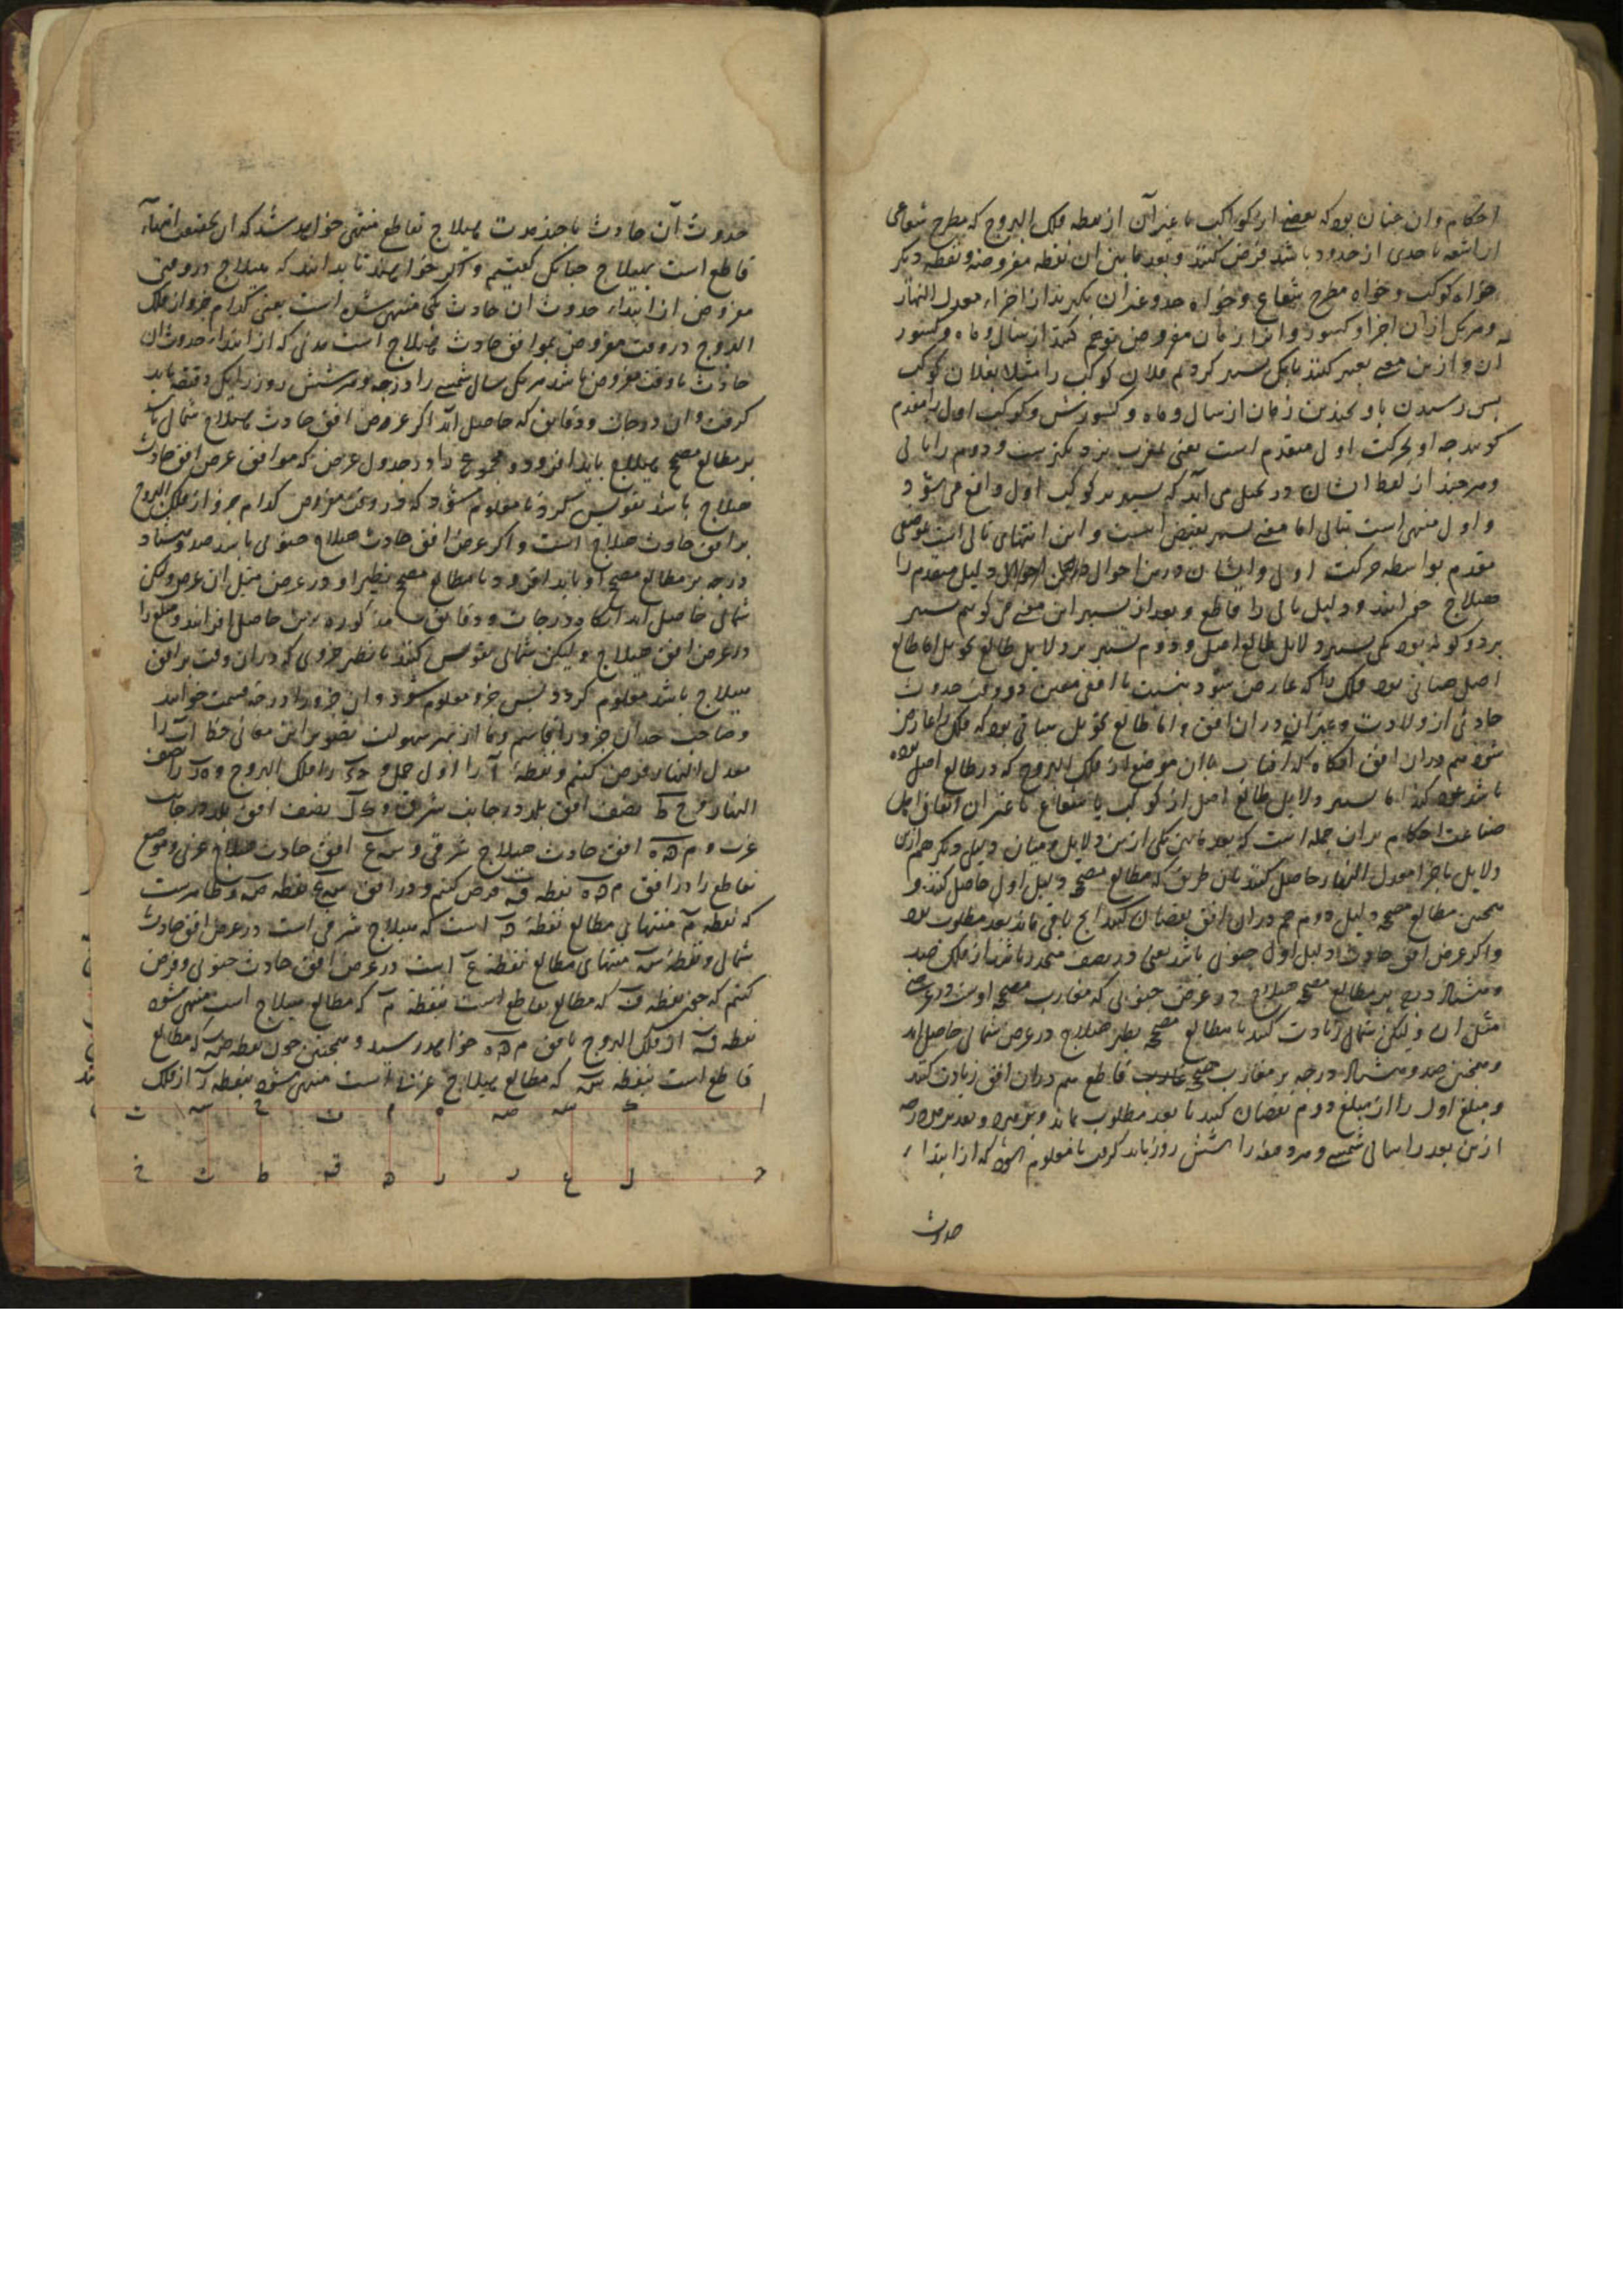 احکام و ان چنان بود که بعضی از کواکب یا غیر آن از نقطه فلک البروج که مطرح شعاعی
از اشعه یا حدی از حدود باشد فرض کنند و بعد ما بین ان نقطه مفروضه و نقطه دیگر
خواه کوکب و خواه مطرح شعاع و خواه حد و غیر ان بگیرند از اجزاء معدل النهار
و هر یک از آن اجزا و کسور و انرا زمان مفروض توهم کنند از سال و ماه و کسور
ان و ازین معنی تعبیر کنند بانک تسییر کردیم فلان کوکب را مثلا بفلان کوکب
پس رسیدن باو بچندین زمان از سال و ماه و کسورش و کوکب اول را متقدم
گویند چه او بحرکت اول متقدم است یعنی بمغرب نزدیکترست و دوم را تالی
و هر چند از لفظ ایشان در تخیل می آید که تسییر مر کوکب اول واقع می شود
و اول منتهی است بتالی اما معنی تسییر بعض اینست و این انتهای تالی است بموضع
متقدم بواسطه حرکت اول و ایشان درین احوال دلیل متقدم را
هیلاج خوانند و دلیل تالی را قاطع و بعد از تسییر این معنی می گویم تسییر
بر دو گونه بود یکی تسییر دلایل طالع اصلی و دوم تسییر بر دلایل طالع تحویل اما طالع
اصل هیأتی بود فلک را که عارض شود بنسبت با افقی معین در وقت حدوث
حادثی از ولادت و غیر آن در ان افق و اما طالع تحویل هیأتی بود که فلک را عارض
شود هم در ان افق انگاه که آفتاب بان موضع از فلک البروج که در طالع اصل بوده
باشد عود کند اما تسییر دلایل طالع اصل از کوکب یا شعاع یا غیر ان اتفاق اهل
صناعت احکام بران جمله است که بعد مابین یکی ازین دلایل و میان دلیلی دیگر هم ازین
دلایل باجزا معدل النهار حاصل کنند باین طریق که مطالع مصحح دلیل اول حاصل کنند و
همچنین مطالع مصحح دلیل دوم هم در ان افق نقصان کنند آنچ باقی ماند بعد مطلوب بود
و اگر عرض افق حادث دلیل اول جنوبی باشد یعنی در نصف منحدر باشد از فلک صد
و هشتاد درج بر مطالع مصحح هیلاج در عرض جنوبی که مغارب مصحح اوست در عرض
مثل ان و لیکن شمالی زیادت کنند تا مطالع مصحح نظیر هیلاج در عرض شمالی حاصل اید
و همچنین صد و هشتاد درجه بر مغارب مصحح قاطع هم در ان افق زیادت کنند
و مبلغ اول را از مبلغ دوم نقصان کنند تا بعد مطلوب بماند و بعد هر درجه
ازین بعد را سالی شمسی و هر دقیقه را شش روز باید گرفت تا معلوم شود که از ابتداء
حدوث
حدوث آن حادث تا چند مدت هیلاج بقاطع منتهی خواهد شد که ان بحقیقت انتهاء
قاطع است بهیلاج چنانک گفتیم و اگر خواهند تا بدانند که هیلاج در وقتی
مفروض از ابتداء حدوث ان حادث بکی منتهی شده است یعنی کدام جزو از فلک
البروج در وقت مفروض بموافق حادث هیلاج است مدتی که از ابتداء حدوث ان
حادث تا وقت مفروض باشد هر یک سال شمسی را درجه و هر شش روز را یک دقیقه باید
گرفت و ان درجات و دقایق که حاصل آید اگر عرض افق حادث هیلاج شمالی باشد
بر مطالع مصحح هیلاج باید افزود و مجموع را در جدول عرض که موافق عرض افق حادث
هیلاج باشد تقویس کرد تا معلوم شود که در وقت مفروض کدام جزو از فلک البروج
بر افق حادث هیلاج است و اگر عرض افق حادث هیلاج جنوبی باشد صد و هشتاد
درجه بر مطالع مصحح او باید افزود تا مطالع مصحح نظیر او در عرض مثل ان عرض و لکن
شمالی حاصل اید انگاه درجات و دقایق مذکوره برین حاصل افزایند و مبلغ را
در عرض افق هیلاج و لیکن شمالی تقویس کنند تا نظیر جزوی که در ان وقت بر افق
هیلاج باشد معلوم گردد پس جزو معلوم شود و ان جزو را درجه قسمت خوانند
و صاحب حد آن جزو را قاسم و ما از بهر سهولت تصویر این معانی خط ا ب را
معدل النهار فرض کنیم و نقطه ا را اول حمل و ج د را فلک البروج و را نصف
النهار و ح ط نصف افق بلد در جانب شرقی و ک ل نصف افق بلد در جانب
غرب و م ه افق حادث هیلاج شرقی و س ع افق حادث هیلاج غربی و موضع
قاطع را در افق م ه نقطه ق فرض کنیم و در افق س ع نقطه ص و ظاهرست
که نقطه م منتهای مطالع نقطه ه است که هیلاج شرقی است در عرض افق حادث
شمالی و نقطه س منتهای مطالع نقطه ع است در عرض افق حادث جنوبی و فرض
کنیم که چون نقطه ف که مطالع قاطع است بنقطه م که مطالع هیلاج است منتهی شود
نقطه ق از فلک البروج بافق م ه خواهد رسید و همچنین چون نقطه ص که مطالع
قاطع است بنقطه س که مطالع هیلاج غربی است منتهی شود نقطه ر از فلک
ا ک س ص ه م ف ح س ب
ج ل ع ر ر ه ق ط ث خ